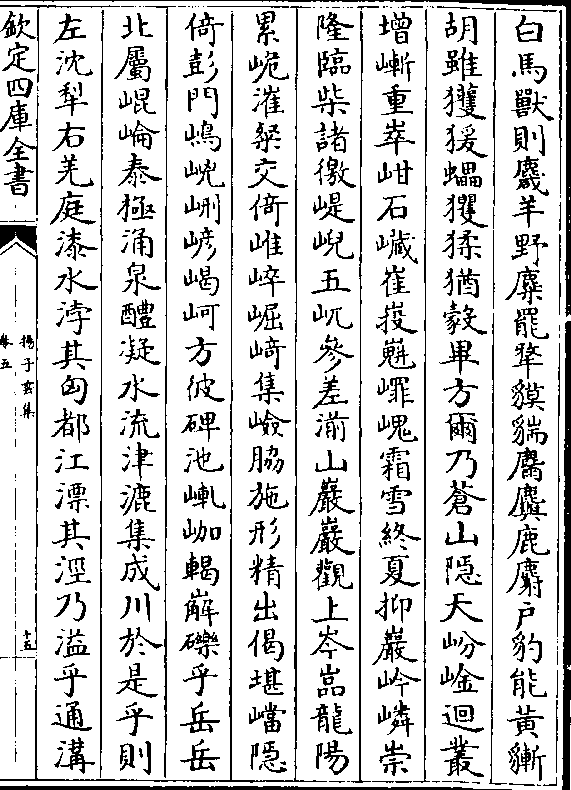 白馬獸則麙羊野麋罷犛貘貒麢鹿麝户豹能黄䝤
胡雖玃猨蠝玃猱猶㲉畢方爾乃蒼山隱天岎崯迴叢
増嶃重崒岨石巀崔㠑嵬霜雪終夏抑巖岭嶙崇
隆臨柴諸徼崼崥五屼參差湔山巖巖觀上岑嵓龍陽
累峗漼粲交倚嶊崪崛崎集嶮脇施形精出偈堪嶹隱
倚彭門嶋㟅嵃嵑岢方彼碑池㠠輵嶰礫乎岳岳
北屬崐崘泰極涌泉醴凝水流津漉集成川於是乎則
左沈犁右羌庭漆水浡其匈都江漂其涇乃溢乎通溝
欽定四庫全書
揚子雲集
卷五
十五